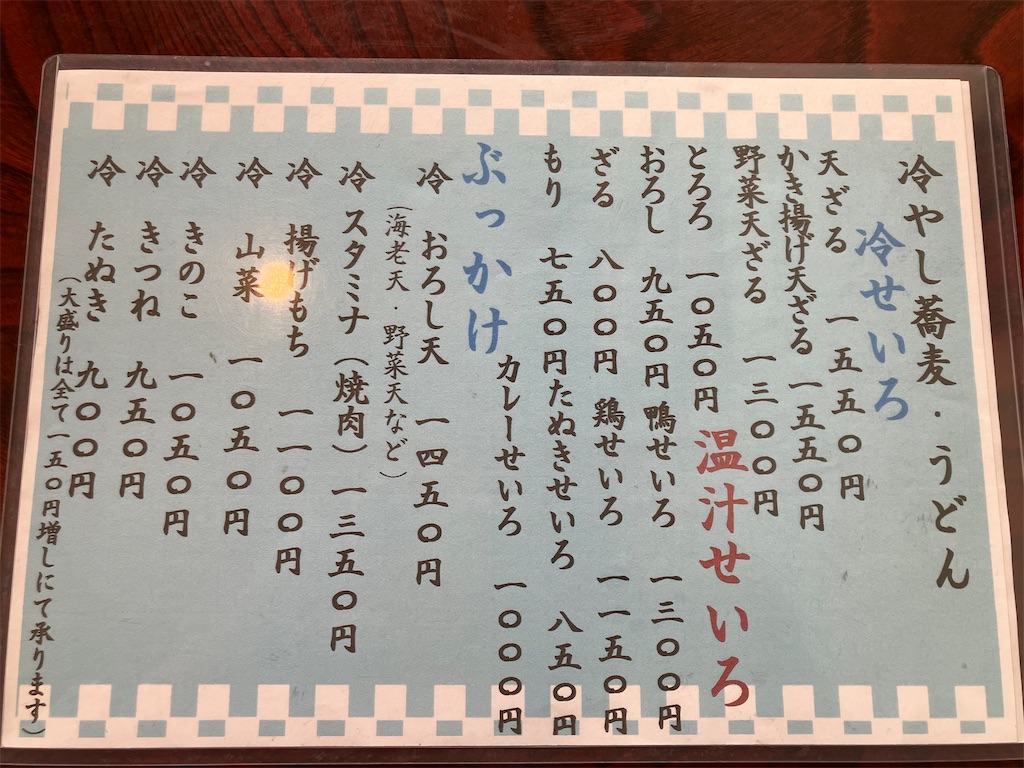 冷やし蕎麦・うどん
冷せいろ
天ざる 一五五〇円
かき揚げ天ざる 一五五〇円
野菜天ざる 一三〇〇円
とろろ 一〇五〇円
おろし 九五〇円
ざる 八〇〇円
もり 七五〇円
温汁せいろ
鴨せいろ 一三〇〇円
鶏せいろ 一一五〇円
たぬきせいろ 八五〇円
カレーせいろ 一〇〇〇円
ぶっかけ
冷 おろし天 一四五〇円
(海老天・野菜天など)
冷 スタミナ(焼肉) 一三五〇円
冷 揚げもち 一一〇〇円
冷 山菜 一〇五〇円
冷 きのこ 一〇五〇円
冷 きつね 九五〇円
冷 たぬき 九〇〇円
(大盛りは全て一五〇円増しにて承ります)